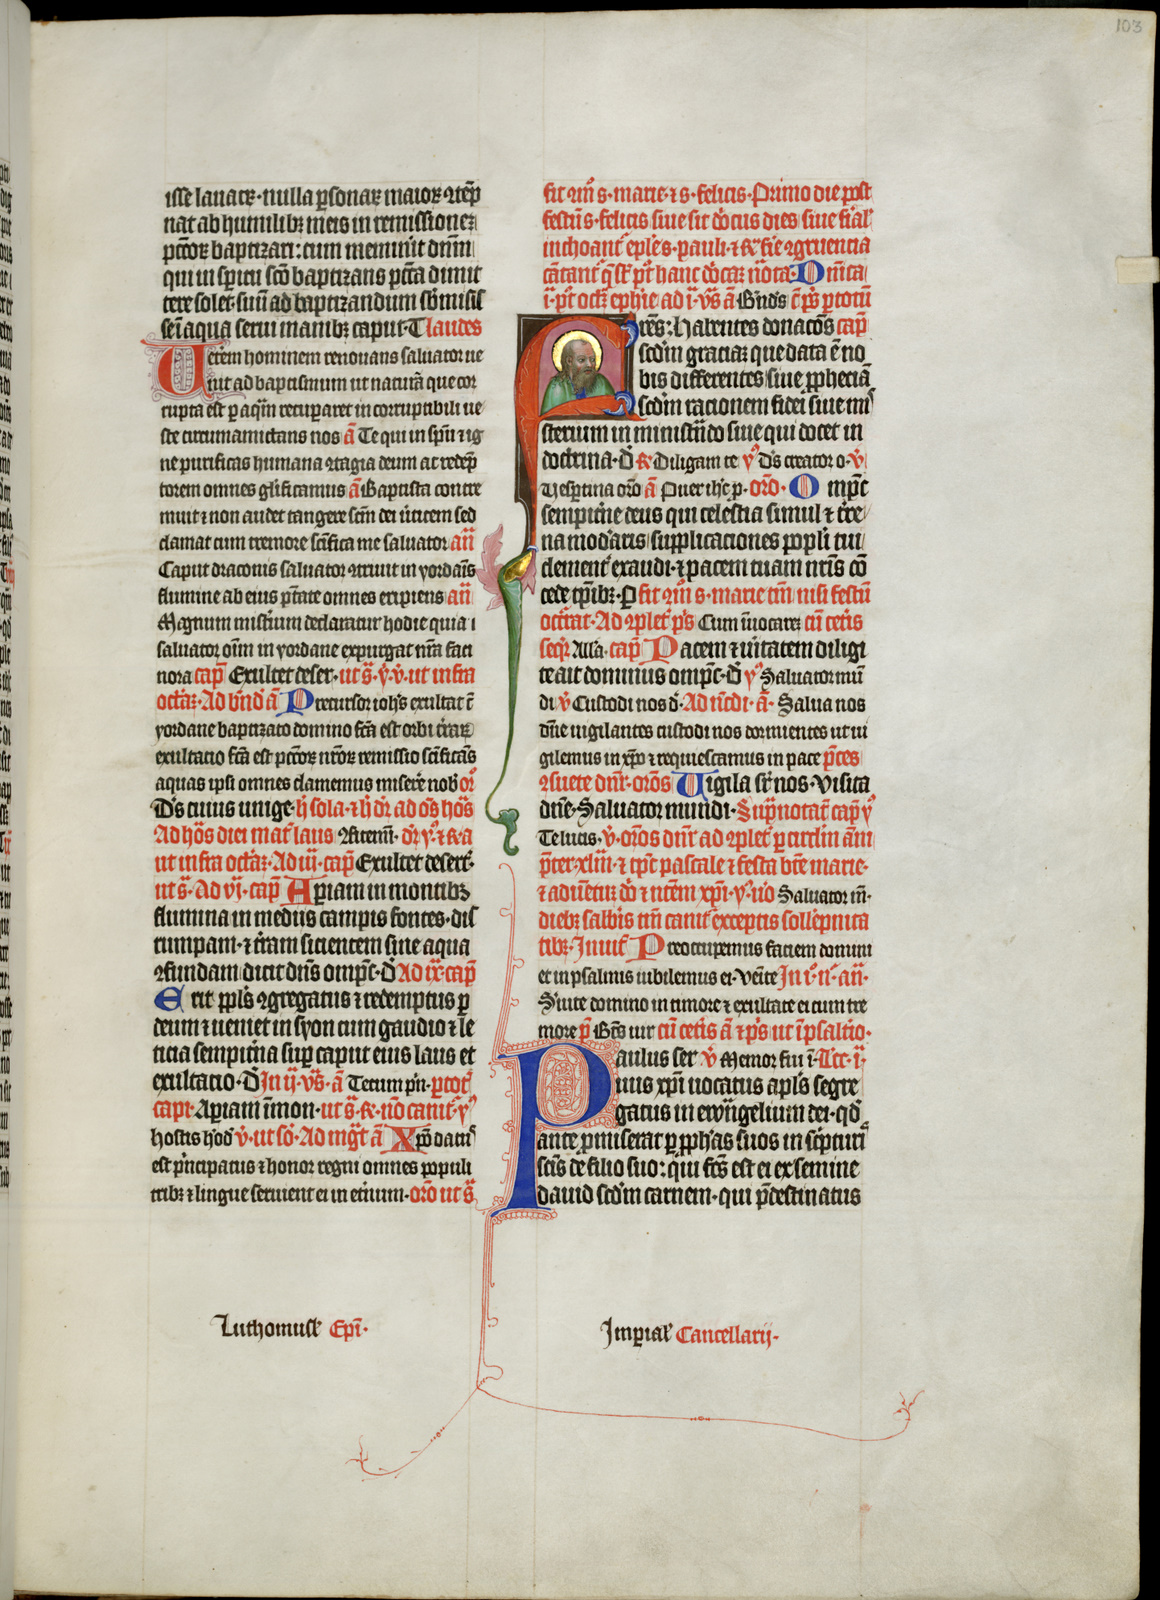 103
isse lauacrꝫ · nulla ꝑsonaꝝ maioꝝ ↄtēp
nat ab humilibꝫ meis in remissionē
pctōꝝ baptizari: cum meminit dnm̄
qui in spiritu scō baptizans pctā dimit
tere solet · suū ad baptizandum sb̄misis
sem̄ aqua serui manibꝫ caput · T laudes
Ueterem hominem renouans saluator ue
nit ad baptismum ut naturā que cor
rupta est ꝑ aqm̄ recuꝑaret in corruptibili ue
ste circumamictans nos ā Te qui in spū ⁊ ig
ne purificas humana ↄtagia deum ac redēp
torem omnes gl̄ificamus ā Baptista contre
muit ⁊ non audet tangere scm̄ dei ūticem sed
clamat cum tremore scīfica me saluator an̄
Caput draconis saluator ↄtriuit in yordanis
flumine ab eius ptāte omnes eripiens an̄
Magnum mistīum declaratur hodie quia
saluator oīm in yordane expurgat nrā faci
nora cap̄ Exultet deser · ut s̄ · ꝟ · ꝟ · ut infra
octāꝫ · Ad bn̄d ā Precursor ioħs exultat c̄
yordane baptizato domino fcā est orbi trāꝝ
exultacio fcā est pctōꝝ nrōꝝ remissio scīficās
aquas ipsi omnes clamemus misere nob or̄
Ds̄ cuius unige · h̄ sola · ⁊ h̄ dr̄ ad oēs hōs
Ad hōs diei mat̄ laus
ut infra octāꝫ · Ad iij · cap̄ Exultet deser̄t
ut s̄ · Ad vj · cap̄ Apriam in montibꝫ
flumina in medius campis fontes · dis
rumpam · ⁊ tr̄am sicientem sine aqua
ↄfundam dicit dn̄s omp̄c · D̄ Ad ix · cap̄
Erit pp̄ls ↄgregatus ⁊ redemptus ꝑ
deum ⁊ ueniet in syon cum gaudio ⁊ le
ticia sempit̄na suꝑ caput eius laus et
exultacio · D̄ In ij · vs̄ · ā Tecum pn̄ ·
cap̄ · Apriam ī mon · ut s̄ · ꝶ · nō canit̄ · ꝟ
hostis h̄od ꝟ · ut s̄ · Ad mgt̄ ā Xpō datus
est pn̄cipatus ⁊ honor regni omnes populi
tribꝫ ⁊ lingue seruient ei in et̄num · orō ut s̄
fit qm̄ s · marie · ⁊ s · felicis · Primo die post
festū s · felicis siue sit d̄ctus dies siue fial̄
inchoant̄ epl̄e s · pauli · ⁊ ꝶ
cātant̄ post hanc d̄cāꝫ nōta · Dn̄ica
i · pt̄ octāꝫ ephīe ad i · vs̄ ā Bn̄ds c̄ ps̄ ꝑ totū
Fres̄: Habentes donacōs cap̄
scdm̄ graciaꝫ que data ē no
bis differentes siue ꝓpheciā
scdm̄ racionem fidei siue mi
sterium in ministrādo siue qui docet in
doctrina · D̄ ꝶ Diligam te ꝟ Ds̄ creator o · ꝟ
Vesꝑtina orō ā Puer ih̄c p · orō · Omp̄c
sempit̄ne deus qui celestia simul ⁊ tr̄re
na modar̄is supplicaciones populi tui
clement̄ exaudi · ⁊ pacem tuam nrīs cō
cede tp̄ibꝫ · P fit qm̄ s · marie tm̄ nisi festū
octīat · Ad ↄplet̄ ps̄ Cum īuocareꝫ cū cetīs
seqr̄ Alla · cap̄ Pacem ⁊ ūitatem diligi
te ait dominus omp̄c · D̄ ꝟ Saluator mū
di ꝟ Custodi nos d̄ · Ad nc̄di · ā · Salua nos
dn̄e uigilantes custodi nos dormientes ut ui
gilemus in xp̄o ⁊ requiescamus in pace p̄ces
ↄsuete dnr̄ · orōs Uigila sr̄ nos · Visita
dn̄e · Saluator mundi · Sup̄notat̄ cap̄ ꝟ
Te lucis · ꝟ · orōs dnr̄ ad ↄplet̄ ꝑ circūlm an̄i
p̄ter xliiij · ⁊ tp̄c pascale ⁊ festa btē marie ·
⁊ aduētꝫ dō ⁊ utēm xp̄i · ꝟ · ūo Saluator m̄ ·
diebꝫ salbīs tm̄ canit̄ exceptis sollēpnita
tibꝫ · Inuit̄ Preoccupemus faciem domini
et in psalmis iubilemus ei · Venīte In i · n̄ · an̄ ·
Seruite domino in timore ⁊ exultate ei cum tre
more p̄ Bts̄ uir cū cetīs ā ⁊ ps̄ ut ī psaltīo ·
Paulus ser ꝟ Memor fui ī · Lcc̄ · i ·
uus xp̄i uocatus apls̄ segre
gatus in ewāgelium dei · qd̄
ante ꝓmiserat ꝑ ꝓph̄as suos in sc̄pturis
scīs de filio suo: qui fcs̄ est ei ex semine
dauid scdm̄ carnem · qui p̄destinatus
Luthomusl̄ Ep̄i ·
Imp̄ial̄ Cancellarij ·